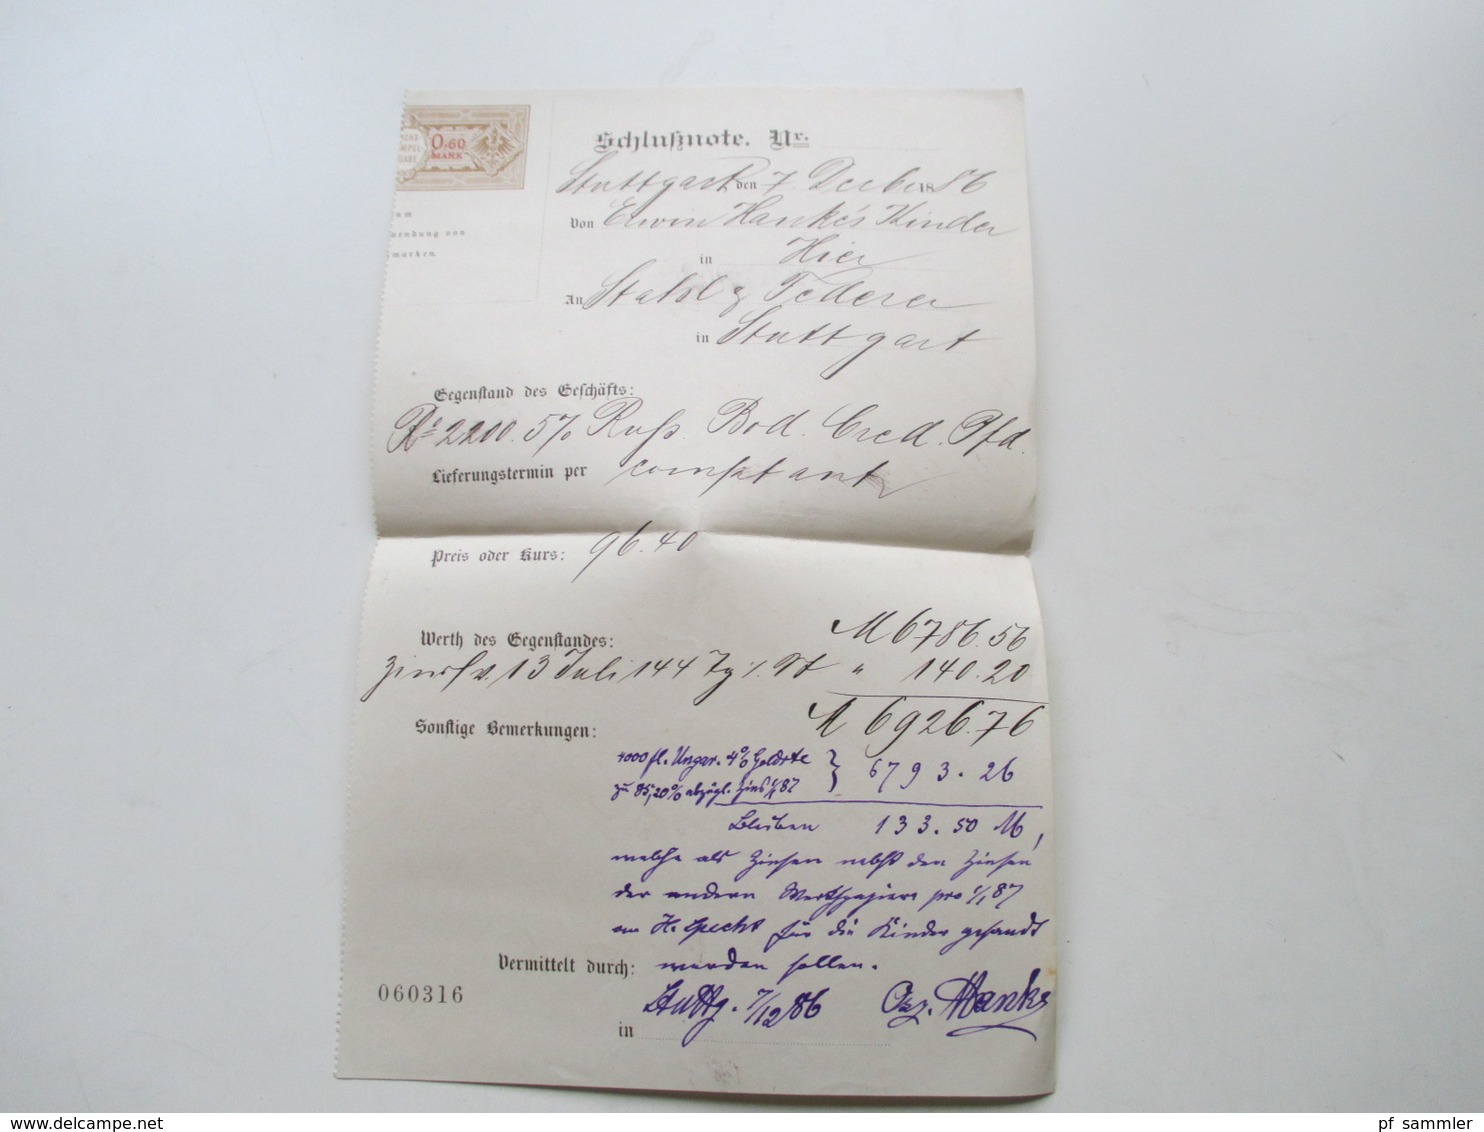 0.60
MARK
Schlußnote. Nr.
Stuttgart, den 7 Decbr 1886
Von Erwin Hanke's Kinder
in Hier
An Stahl & Federer
in Stuttgart
am
wendung von
marken.
Gegenstand des Geschäfts:
2200. 5% Russ. Bod. Cred. Pfd.
Lieferungstermin per comptant
Preis oder Kurs: 96.40
Werth des Gegenstandes: M 6786.56
Zins v. 13 Juli 144 Tg " 140.20
M 6926.76
Sonstige Bemerkungen:
4000 fl. Ungar. 4% Goldrte } 6793.26
zu 85,20% abzügl. Zins 1/1 87
bleiben 133.50 M,
welche als Zinsen nebst den Zinsen
der andern Werthpapiere pro 1/1 87
an H. Specht für die Kinder gesandt
werden sollen.
Vermittelt durch:
060316
Stuttg. 7/12 86 Hanke
in
pf_sammler
www.delcampe.net